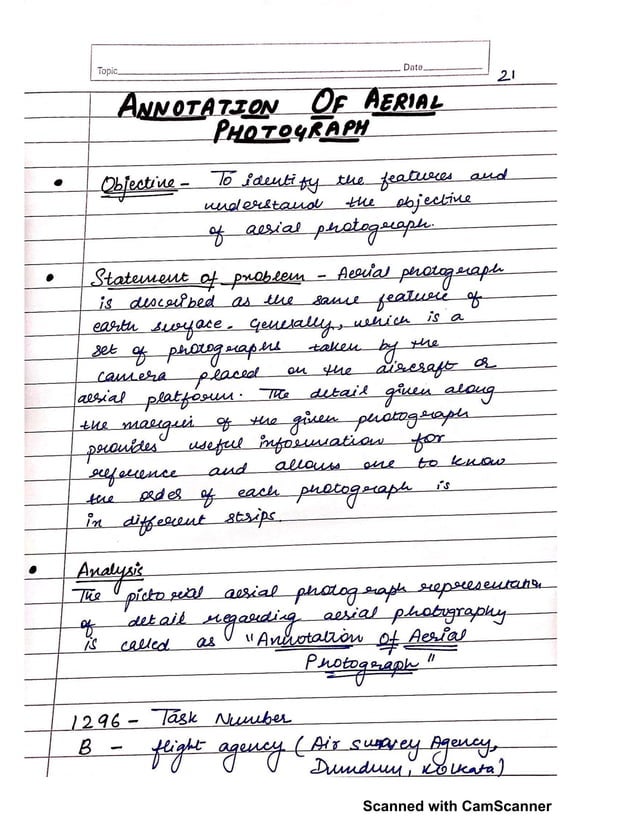 Topic Date
21
ANNOTATION OF AERIAL
PHOTOGRAPH
• Objective - To identify the features and
understand the objective
of aerial photograph.
• Statement of problem - Aerial photograph
is described as the same feature of
earth surface. Generally, which is a
set of photographs taken by the
camera placed on the aircraft or
aerial platform. The detail given along
the margin of the given photograph
provides useful information for
reference and allows one to know
the order of each photograph is
in different strips.
• Analysis
The pictorial aerial photograph representation
of detail regarding aerial photography
is called as "Annotation Of Aerial
Photograph"
1296 - Task Number
B - flight agency (Air survey Agency,
Dumdum, Kolkata)
Scanned with CamScanner